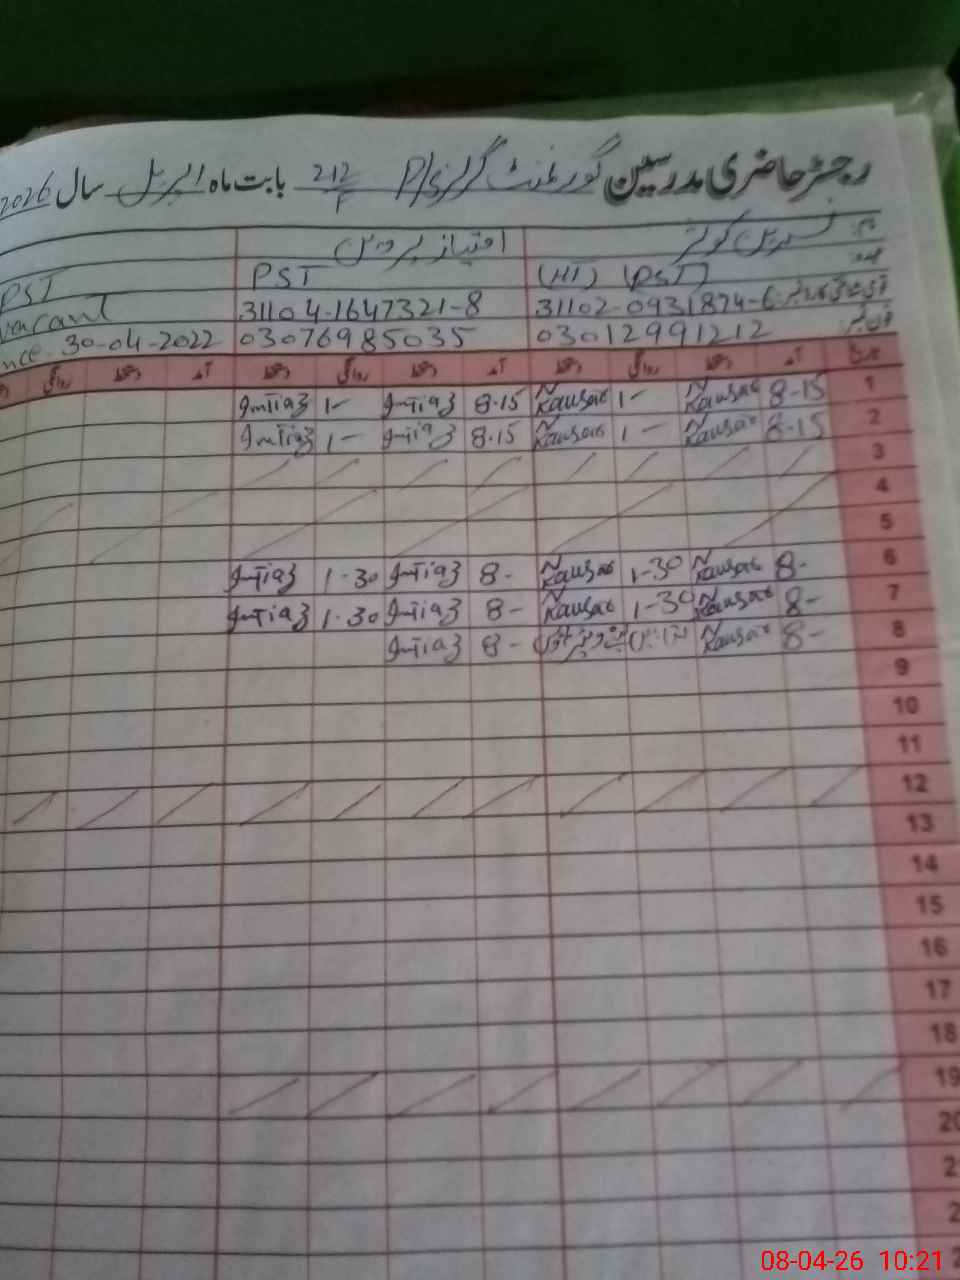 رجسٹر حاضری مدرسین گورنمنٹ گرلز P/S 212/F بابت ماہ اپریل سال 2026
نام نسرین کوثر امتیاز پروین
عہدہ (HT) (PST) PST PST
31102-0931874-6 31104-1647321-8 vacant
فون نمبر 03012991212 03076985035 30-04-2022
تاریخ آمد دستخط روانگی دستخط آمد دستخط روانگی دستخط آمد دستخط روانگی
1 8-15 Kausar 1- Kausar 8-15 Imtiaz 1- Imtiaz
2 8-15 Kausar 1- Kausar 8-15 Imtiaz 1- Imtiaz
3
4
5
6 8- Kausar 1-30 Kausar 8- Imtiaz 1-30 Imtiaz
7 8- Kausar 1-30 Kausar 8- Imtiaz 1-30 Imtiaz
8 8- Kausar 8- Imtiaz
9
10
11
12
13
14
15
16
17
18
19
20
08-04-26 10:21